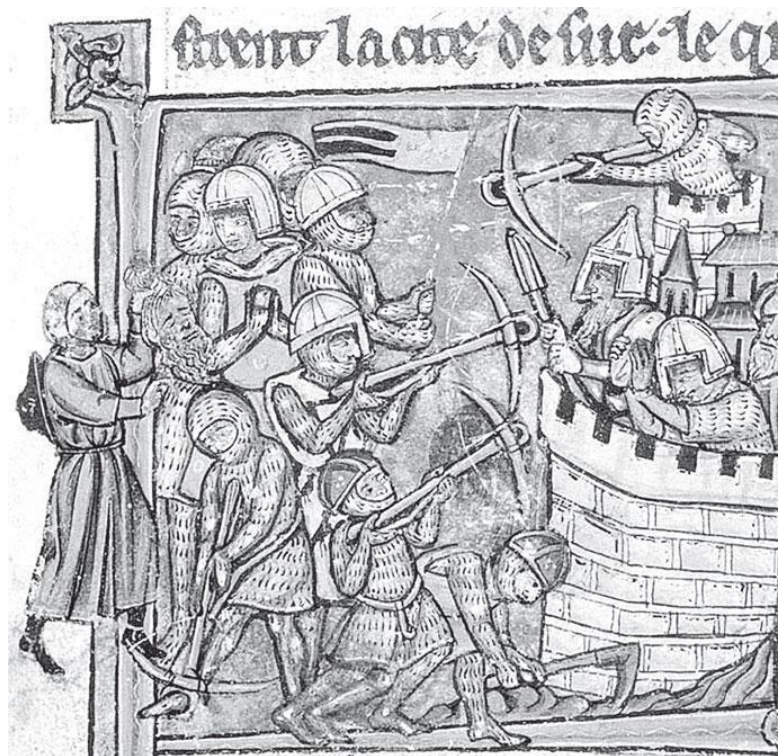 sirent la cite de sur. le q